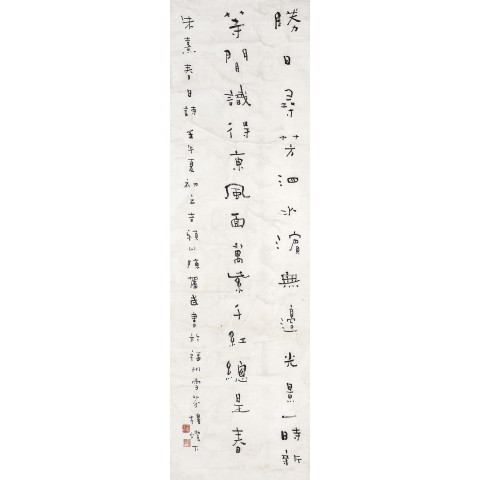 勝日尋芳泗水濱無邊光景一時新
等閒識得東風面萬紫千紅總是春
朱熹春日詩壬午夏初書於福州